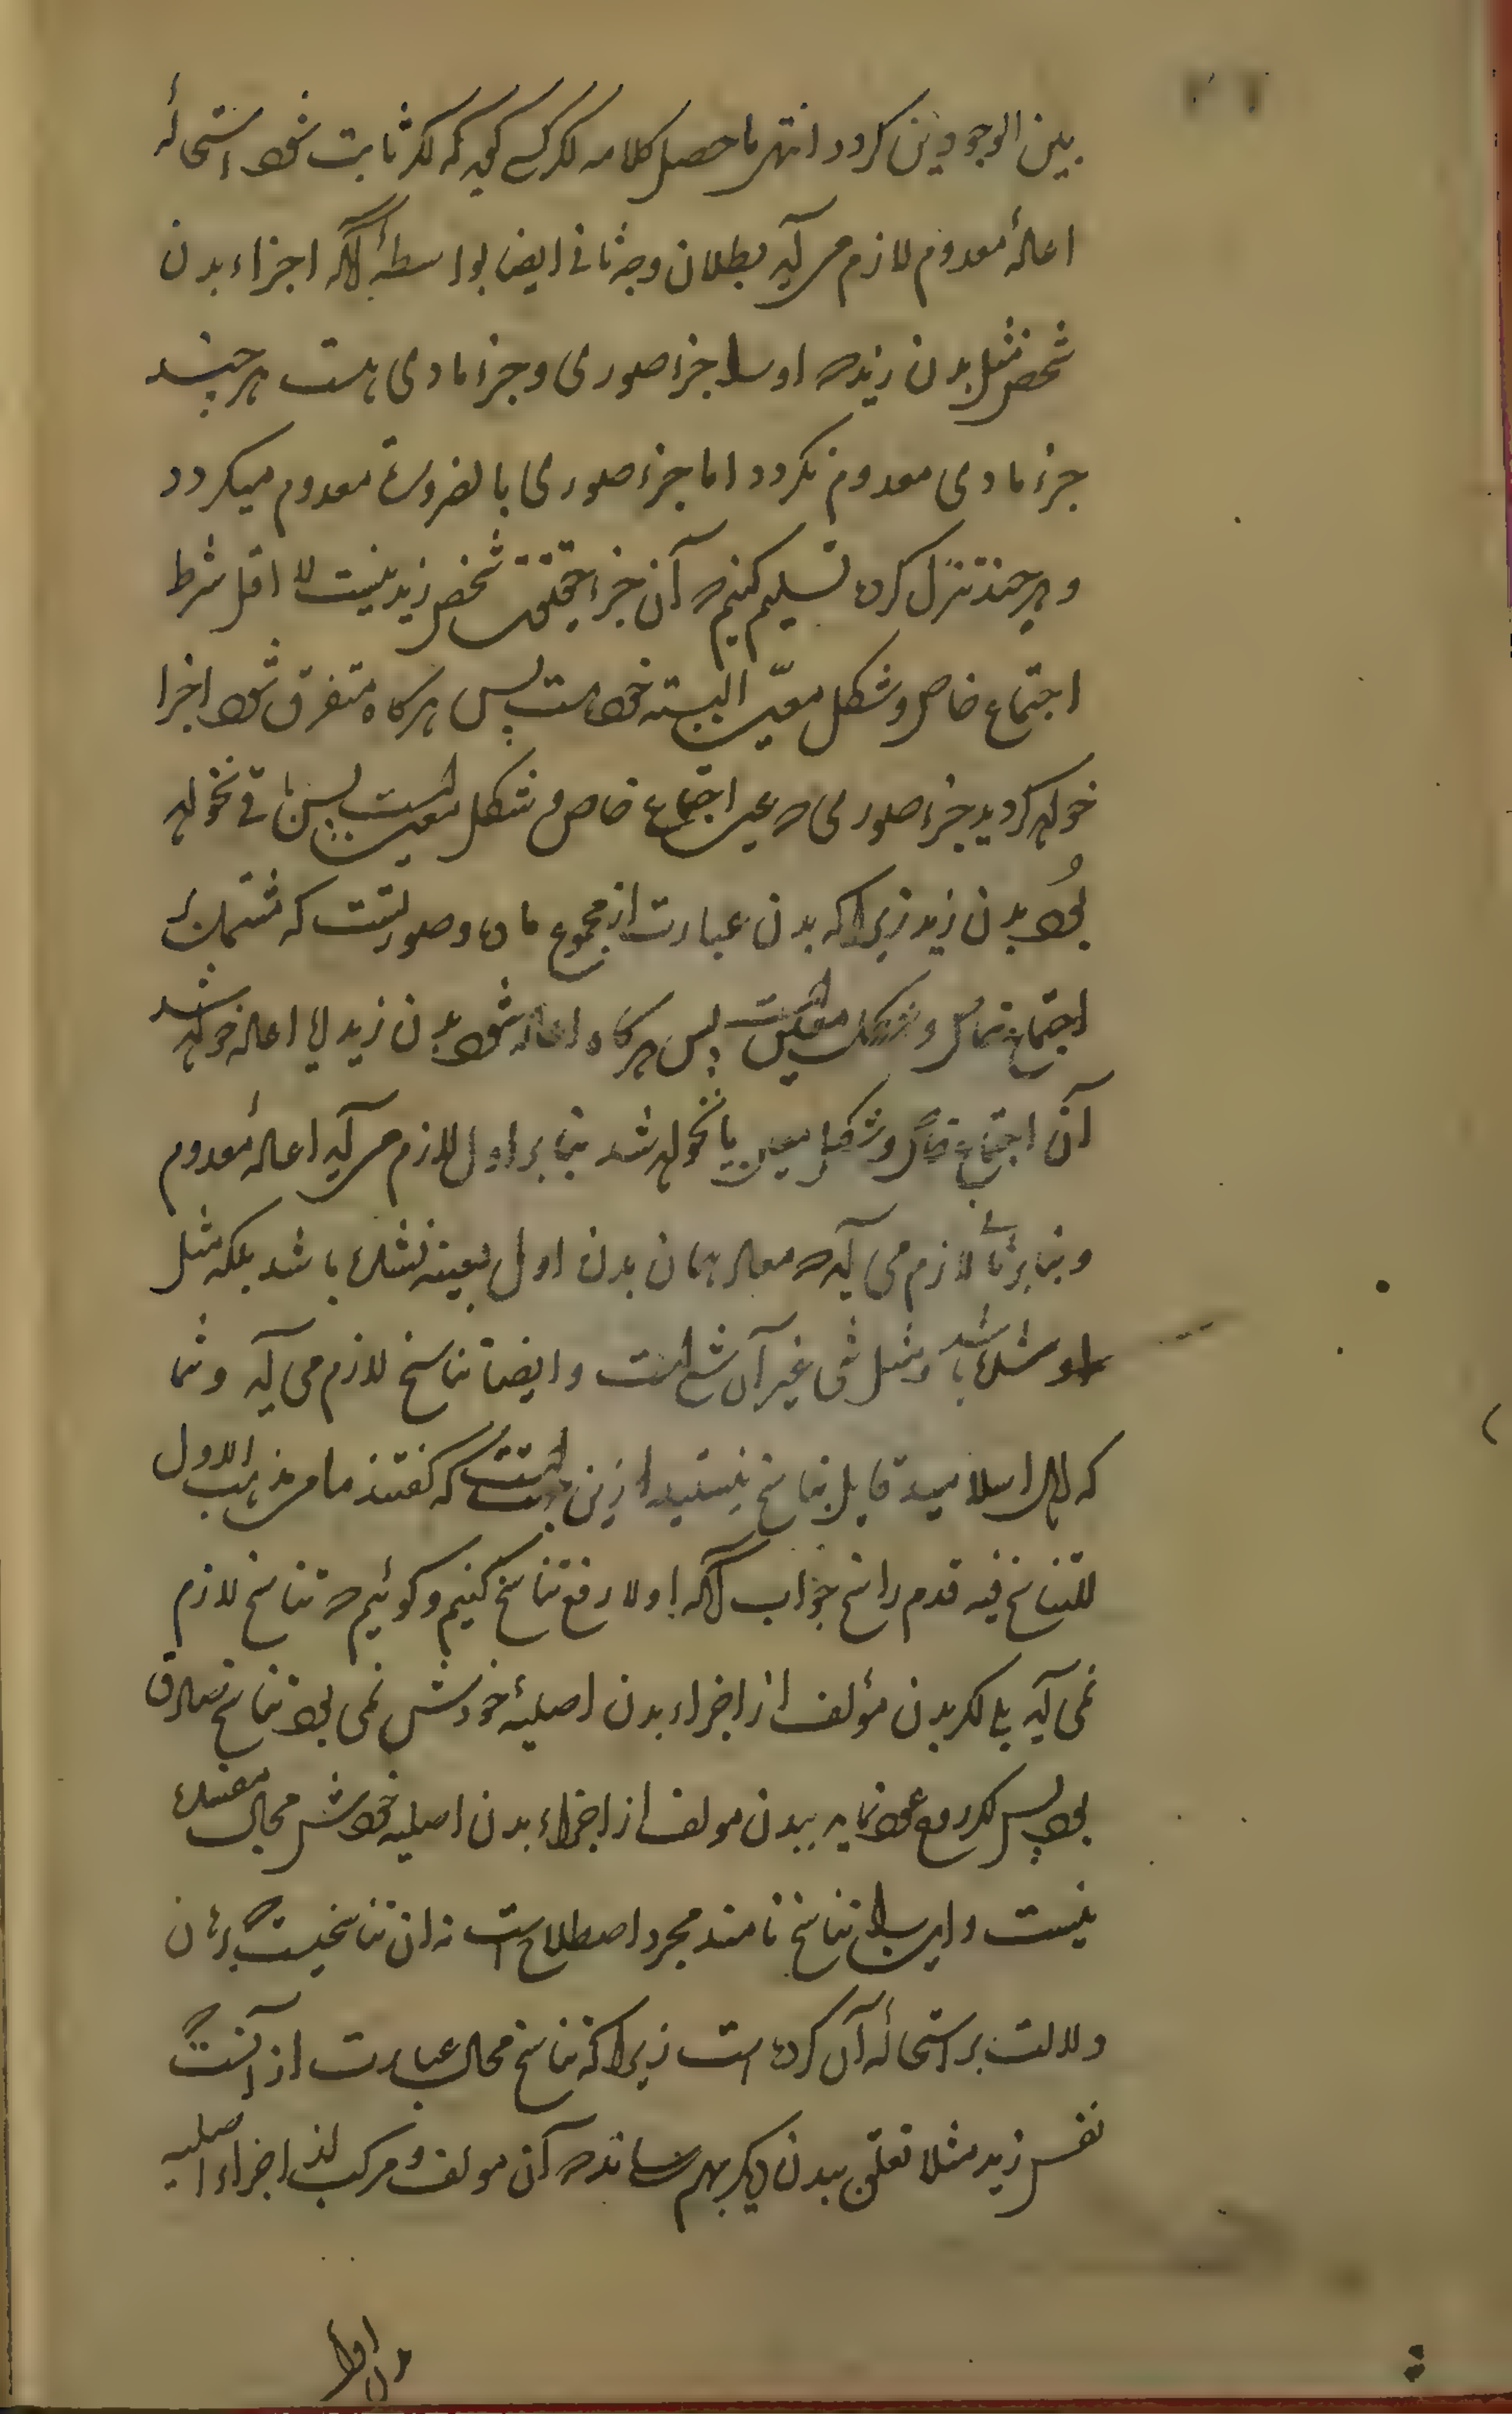 بین الوجودین کردد انتهی ماحصل کلامه اگر کسی کوید که اکر ثابت شود استحالۀ
اعادۀ معدوم لازم می آید بطلان وجه ثانی ایضا بواسطۀ آنکه اجزاء بدن
شخص مثل بدن زید که او را جزء صوری و جزء مادی هست هر چند
جزء مادی معدوم نکردد اما جزء صوری بالضرورة معدوم میکردد
و هر چند تنزل کرده تسلیم کنیم که آن جزء حقیقت شخص زید نیست لا اقل شرط
اجتماع خاص و شکل معین البته خود هست پس هرکاه متفرق شود اجزا
خواهد کردید جزء صوری که عین اجتماع خاص و شکل معین است پس باقی نخواهد
بود بدن زید زیرا که بدن عبارت از مجموع ماده و صورتست که مشتمله
اجتماع خاص و شکل معین است پس هرکاه اعاده شود بدن زید یا اعاده خواهد شد
آن اجتماع خاص و شکل معین یا نخواهد شد بنابر اول لازم می آید اعادۀ معدوم
و بنابر ثانی لازم می آید که معاد همان بدن اول بعینه نشده باشد بلکه مثل
او شده باشد و مثل شی غیر آن شی است و ایضا تناسخ لازم می آید و شما
که اهل اسلامید قایل بتناسخ نیستید ازین جهتست که گفتند ما من مذهب الا و
للتناسخ فیه قدم راسخ جواب آنکه اولا رفع تناسخ کنیم و کوئیم که تناسخ لازم
نمی آید یا اکر بدن مؤلف از اجزاء بدن اصلیۀ خودش نمی بود تناسخ صادق
بود پس اکر روح عود نماید ببدن مولف از اجزاء بدن اصلیه خودش محال
نیست و این را تناسخ نامند مجرد اصطلاح است نه ان تناسخیست که برهان
دلالت بر استحالۀ آن کرده است زیرا که تناسخ محال عبارت از آنست که
نفس زید مثلا تعلق ببدن دیکر بهم رساند که آن مولف و مرکب از اجزاء اصلیه